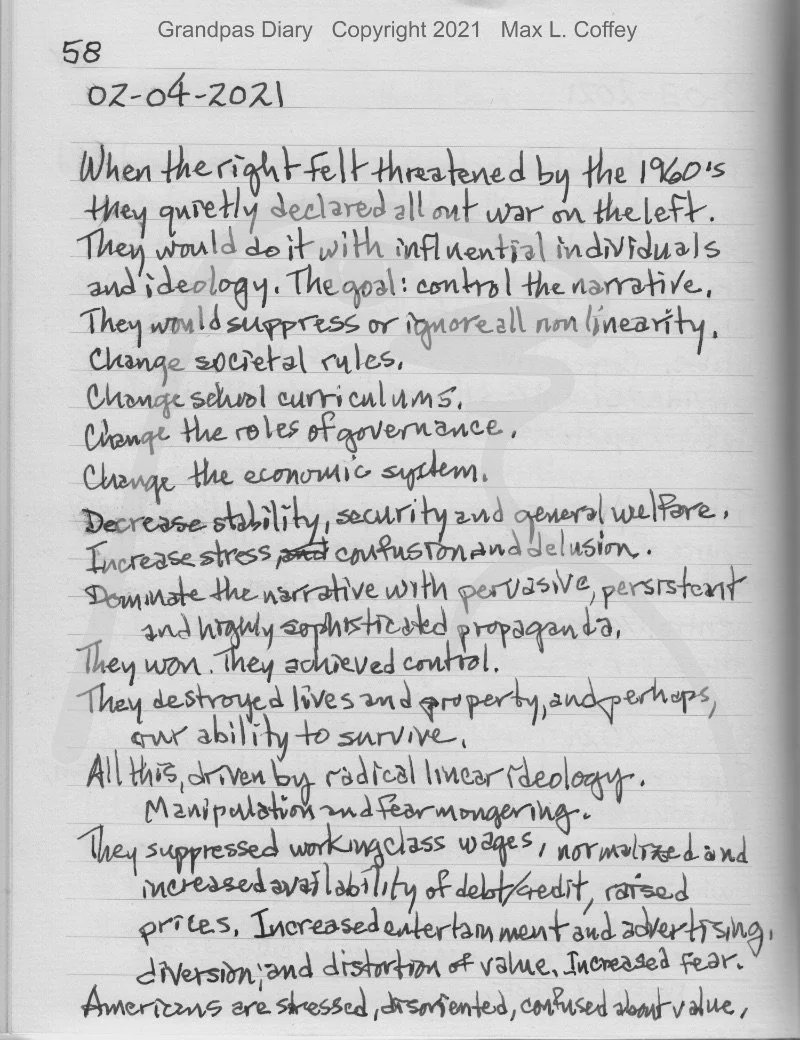 Grandpas Diary Copyright 2021 Max L. Coffey
58
02-04-2021
When the right felt threatened by the 1960's
they quietly declared all out war on the left.
They would do it with influential individuals
and ideology. The goal: control the narrative.
They would suppress or ignore all non linearity.
Change societal rules.
Change school curriculums.
Change the roles of governance.
Change the economic system.
Decrease stability, security and general welfare.
Increase stress, and confusion and delusion.
Dominate the narrative with pervasive, persistent
and highly sophisticated propaganda.
They won. They achieved control.
They destroyed lives and property, and perhaps,
our ability to survive.
All this, driven by radical linear ideology.
Manipulation and fear mongering.
They suppressed working class wages, normalized and
increased availability of debt/credit, raised
prices. Increased entertainment and advertising,
diversion, and distortion of value. Increased fear.
Americans are stressed, disoriented, confused about value,